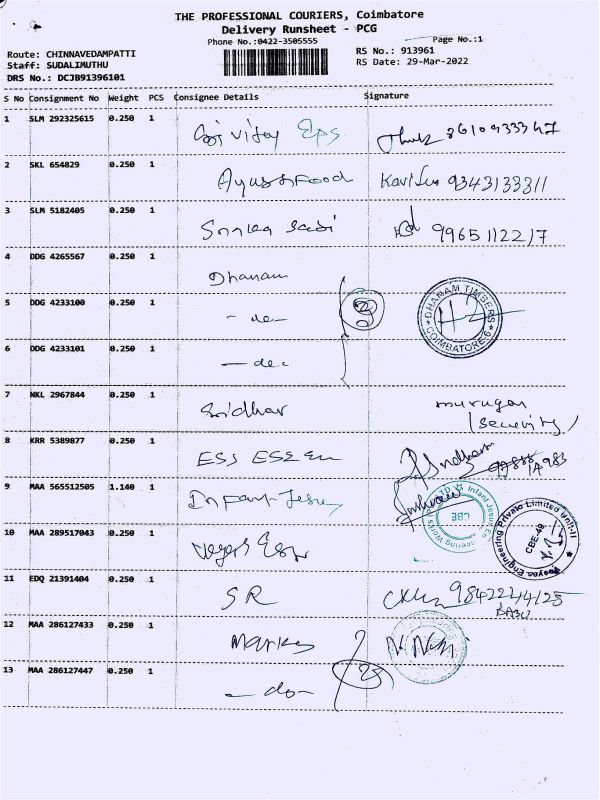 THE PROFESSIONAL COURIERS, Coimbatore
Delivery Runsheet - PCG
Phone No.:0422-3505555
Page No.:1
Route: CHINNAVEDAMPATTI
Staff: SUDALIMUTHU
DRS No.: DCJB91396101
RS No.: 913961
RS Date: 29-Mar-2022
S No Consignment No Weight PCS Consignee Details Signature
1 SLM 292325615 0.250 1 Vijay Eps 8610933347
2 SKL 654829 0.250 1 Ayush Food 9343133311
3 SLM 5182405 0.250 1 9965112217
4 DDG 4265567 0.250 1 Dhanam
5 DDG 4233100 0.250 1 - do -
DHANAM TIMBERS
COIMBATORE-6
6 DDG 4233101 0.250 1 - do -
7 NKL 2967844 0.250 1 Sridhar murugan
(security)
8 KRR 5389877 0.250 1 ESS ESS En
9 MAA 565512505 1.140 1 Infant Jesus
Infant Jesus
CBE
10 MAA 289517043 0.250 1
Engineering Private Limited Unit-II
CBE-49
11 EDQ 21391404 0.250 1 SR 9842244125
BABU
12 MAA 286127433 0.250 1
13 MAA 286127447 0.250 1 - do -